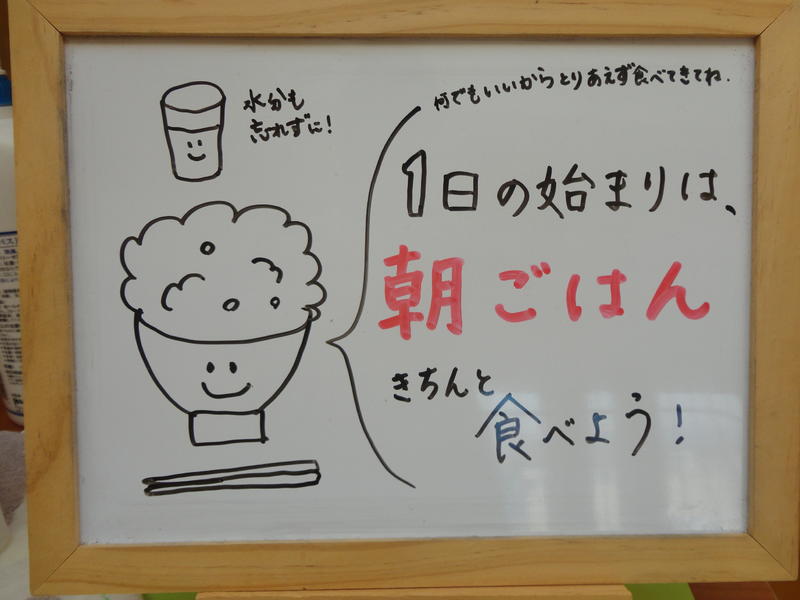 水分も
忘れずに!
何でもいいからとりあえず食べてきてね.
1日の始まりは、
朝ごはん
きちんと
食べよう!